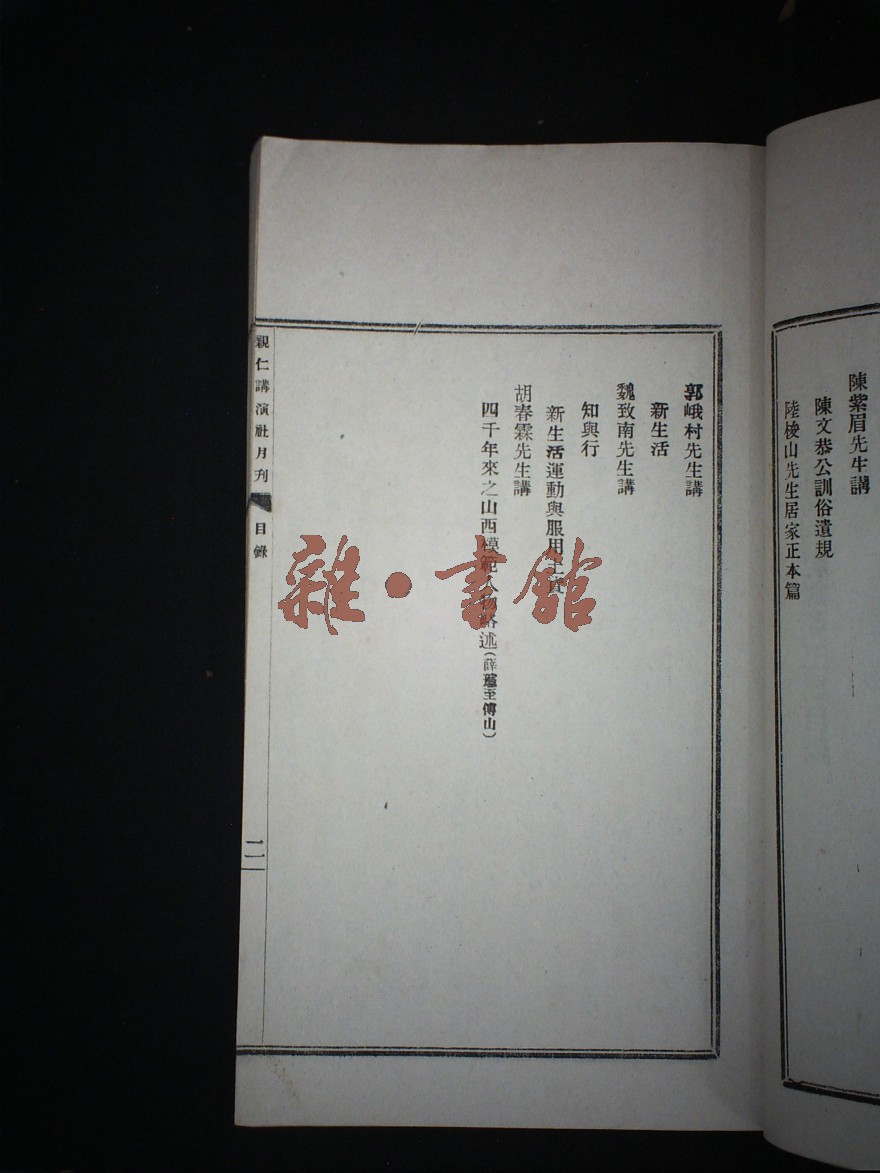 陳紫眉先生講
陳文恭公訓俗遺規
陸梭山先生居家正本篇
郭峨村先生講
新生活
魏致南先生講
知與行
新生活運動與服用土貨
胡春霖先生講
四千年來之山西模範人物略述(薛瑄至傅山)
親仁講演社月刊 目錄
二
雜·書館